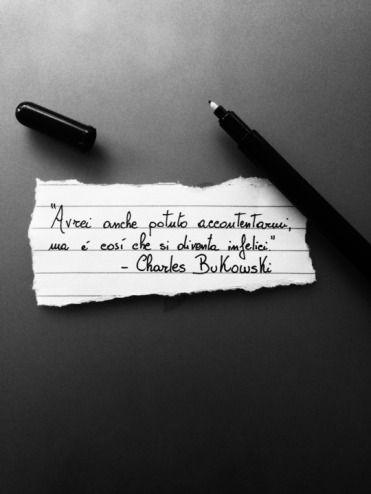 "Avrei anche potuto accontentarmi,
ma é cosí che si diventa infelici."
- Charles BuKowsKi